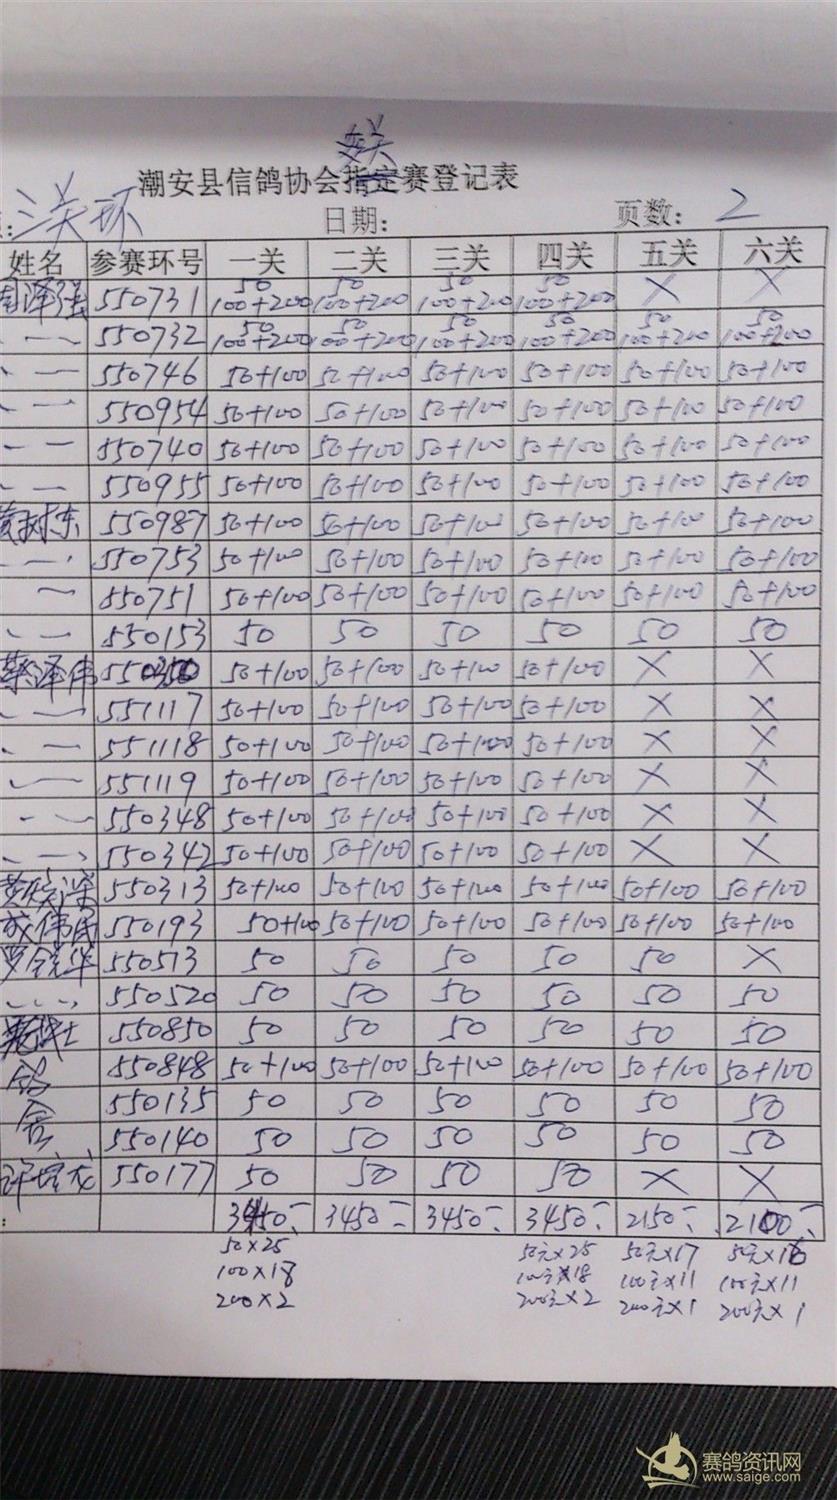 关
潮安县信鸽协会指定赛登记表
关环 日期: 页数: 2
姓名 参赛环号 一关 二关 三关 四关 五关 六关
周泽强 550731 50 100+200 50 100+200 50 100+200 50 100+200 X X
550732 50 100+200 50 100+200 50 100+200 50 100+200 50 100+200 50 100+200
550746 50+100 50+100 50+100 50+100 50+100 50+100
550954 50+100 50+100 50+100 50+100 50+100 50+100
550740 50+100 50+100 50+100 50+100 50+100 50+100
550955 50+100 50+100 50+100 50+100 50+100 50+100
黄树东 550987 50+100 50+100 50+100 50+100 50+100 50+100
550753 50+100 50+100 50+100 50+100 50+100 50+100
550751 50+100 50+100 50+100 50+100 50+100 50+100
550153 50 50 50 50 50 50
蔡泽伟 550350 50+100 50+100 50+100 50+100 X X
551117 50+100 50+100 50+100 50+100 X X
551118 50+100 50+100 50+100 50+100 X X
551119 50+100 50+100 50+100 50+100 X X
550348 50+100 50+100 50+100 50+100 X X
550342 50+100 50+100 50+100 50+100 X X
黄 550313 50+100 50+100 50+100 50+100 50+100 50+100
成伟民 550193 50+100 50+100 50+100 50+100 50+100 50+100
罗 华 550513 50 50 50 50 50 X
550520 50 50 50 50 50 50
士 550850 50 50 50 50 50 50
鸽 550848 50+100 50+100 50+100 50+100 50+100 50+100
舍 550135 50 50 50 50 50 50
550140 50 50 50 50 50 50
许 龙 550177 50 50 50 50 X X
3450 3450 3450 3450 2150 2100
50×25 50元×25 50元×17 50元×16
100×18 100元×18 100元×11 100元×11
200×2 200元×2 200元×1 200元×1
赛鸽资讯网
www.saige.com